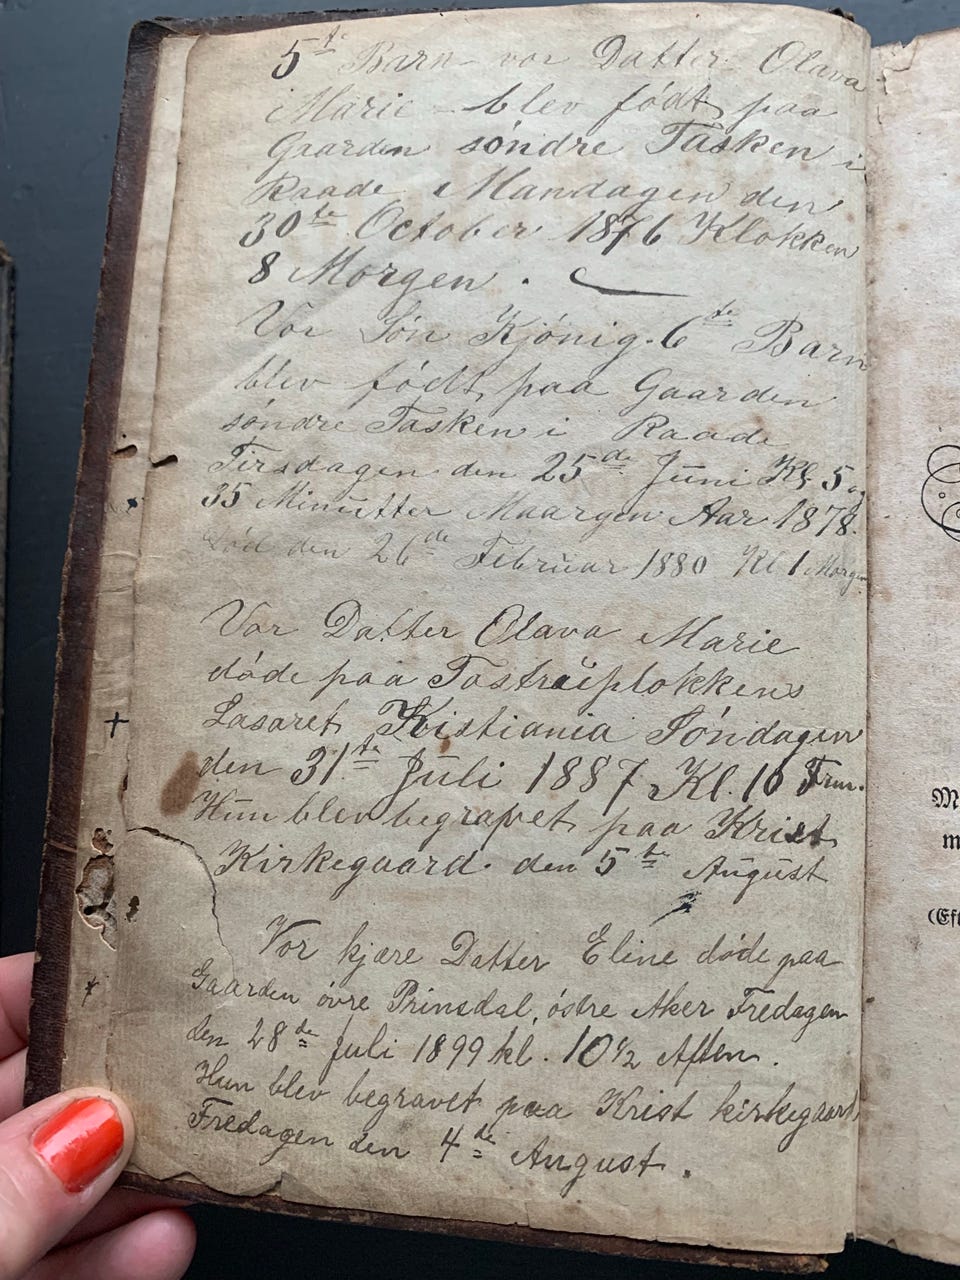 5te Barn vor Datter Olava
Marie blev født paa
Gaarden søndre Tasken i
Raade Mandagen den
30te October 1876 Klokken
8 Morgen.
Vor Søn Kjønig. 6te Barn
blev født paa Gaarden
søndre Tasken i Raade
Tirsdagen den 25de Juni Kl. 5 og
35 Minutter Maargen Aar 1878.
Død den 26de Februar 1880 Kl 1 Morgen
Vor Datter Olava Marie
døde paa Tostrupløkkens
Lasaret Kristiania Søndagen
den 31te Juli 1887 Kl. 10 Frm.
Hun blev begravet paa Krist
Kirkegaard den 5te August
Vor kjære Datter Eline døde paa
Gaarden øvre Prinsdal, østre Aker Fredagen
den 28de Juli 1899 kl. 10 1/2 Aften.
Hun blev begravet paa Krist kirkegaard
Fredagen den 4de August.
M
m
(Eft